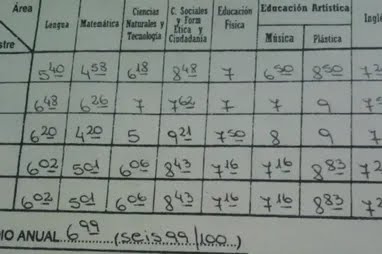 Area Lengua Matemática Ciencias Naturales y Tecnología C. Sociales y Form Etica y Ciudadanía Educación Física Educación Artística
Música Plástica
5 40 4 58 6 18 8 48 7 6 50 8 50 7
6 48 6 26 7 7 62 7 7 9 7
6 20 4 20 5 9 21 7 50 8 9 7
6 02 5 01 6 06 8 43 7 16 7 16 8 83 7 2
6 02 5 01 6 06 8 43 7 16 7 16 8 83 7 2
IO ANUAL 6 99 (seis 99/100...)